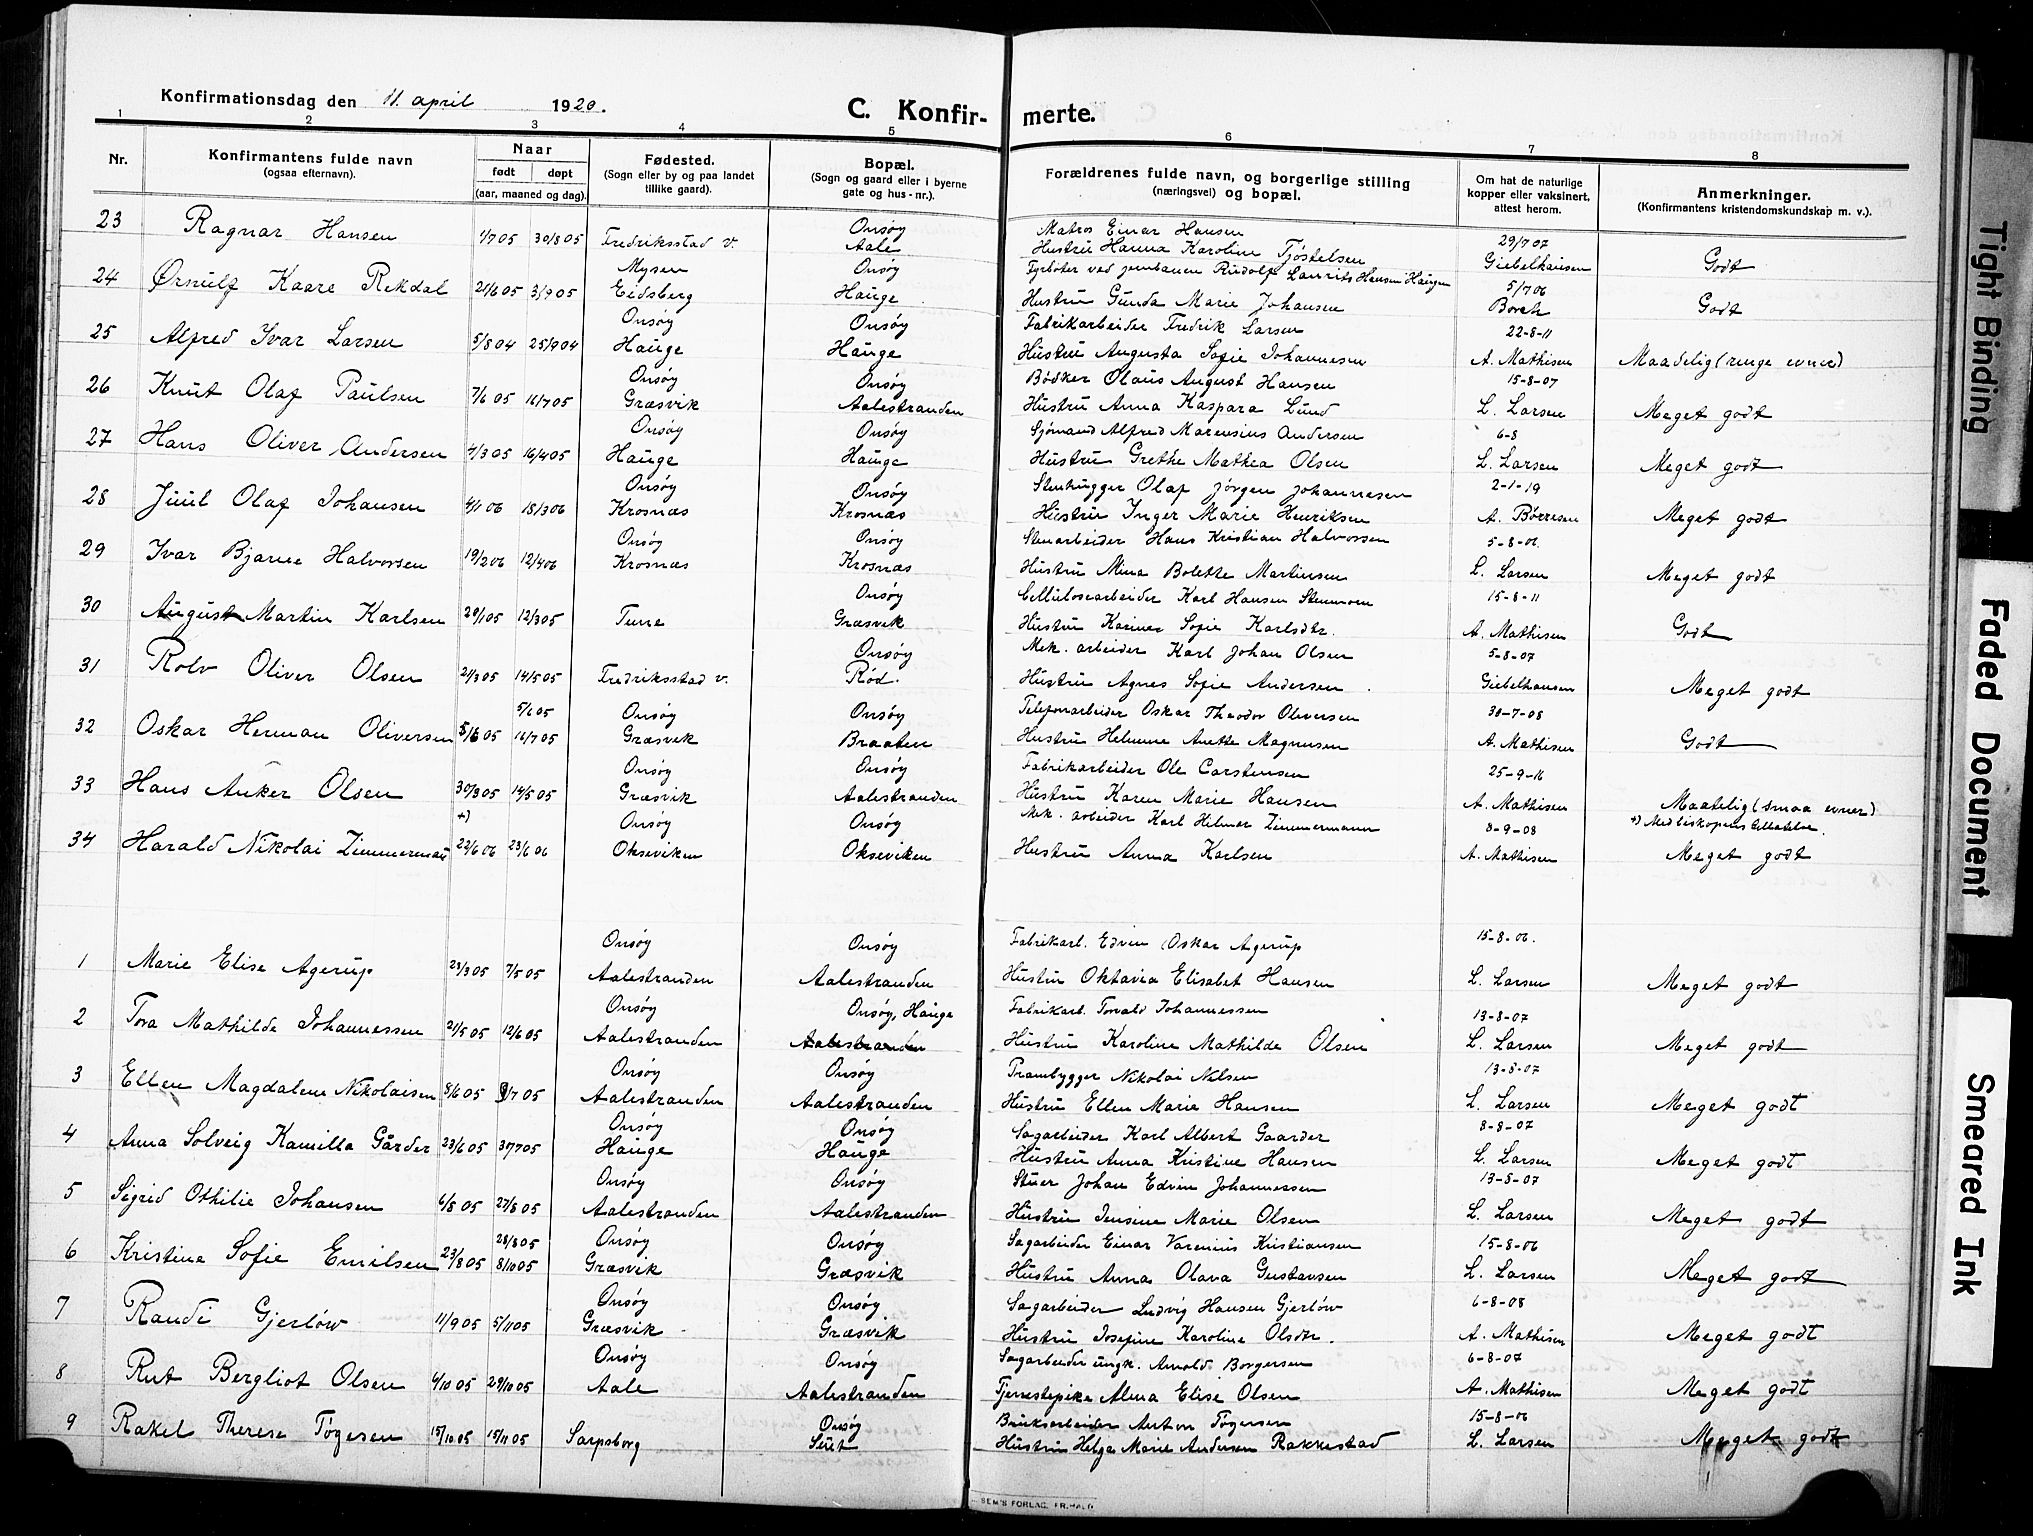 Konfirmationsdag den 11. april 1920.
C. Konfir-
merte.
1 2 3 4 5 6 7 8
Nr.
Konfirmantens fulde navn
(ogsaa efternavn).
Naar
født døpt
(aar, maaned og dag).
Fødested.
(Sogn eller by og paa landet
tillike gaard).
Bopæl.
(Sogn og gaard eller i byerne
gate og hus-nr.).
Forældrenes fulde navn, og borgerlige stilling
(næringsvei) og bopæl.
Om hat de naturlige
kopper eller vaksinert,
attest herom.
Anmerkninger.
(Konfirmantens kristendomskundskap m. v.).
Onsøy Matros Einar Hansen 29/7 07
23 Ragnar Hansen 1/7 05 30/8 05 Fredriksstad v. Aale Hustru Hanna Karoline Tjøstelsen Giebelhausen Godt
Mysen Onsøy Fyrbøter ved jernbanen Rudolf Laurits Hansen Haugen 5/7 06
24 Ørnulf Kaare Rekdal 21/6 05 3/9 05 Eidsberg Hauge Hustru Gunda Marie Johansen Borch Godt
Onsøy Onsøy Fabrikarbeider Fredrik Larsen 22-8-11
25 Alfred Ivar Larsen 5/8 04 25/9 04 Hauge Hauge Hustru Augusta Sofie Johannesen A. Mathisen Maadelig (ringe evner)
Onsøy Onsøy Bødker Olaus August Hansen 15-8-07
26 Knut Olaf Paulsen 7/6 05 16/7 05 Græsvik Aalestranden Hustru Anna Kaspara Lund L. Larsen Meget godt
Onsøy Onsøy Sjømand Alfred Marensius Andersen 6-8
27 Hans Oliver Andersen 4/3 05 16/4 05 Hauge Hauge Hustru Grethe Mathea Olsen L. Larsen Meget godt
Onsøy Onsøy Stenhugger Olaf Jørgen Johannesen 2-1-19
28 Juul Olaf Johansen 4/1 06 18/3 06 Krosnæs Krosnæs Hustru Inger Marie Henriksen A. Børresen Meget godt
Onsøy Onsøy Stenarbeider Hans Kristian Halvorsen 5-8-06.
29 Ivar Bjarne Halvorsen 19/2 06 12/4 06 Krosnæs Krosnæs Hustru Mina Bolette Martinsen L. Larsen Meget godt
Onsøy Cellulosearbeider Karl Hansen 15-8-11
30 August Martin Karlsen 29/1 05 12/3 05 Tune Græsvik Hustru Karine Sofie Karlsdtr. A. Mathisen Godt
Onsøy Mek. arbeider Karl Johan Olsen 5-8-07
31 Rolv Oliver Olsen 21/3 05 14/5 05 Fredriksstad v. Rød. Hustru Agnes Sofie Andersen Giebelhausen Meget godt
5/6 05 Onsøy Onsøy Telefonarbeider Oskar Theodor Oliversen 30-7-08
32 Oskar Herman Oliversen 5/6 05 16/7 05 Græsvik Braaten Hustru Helmine Anette Magnusen A. Mathisen Godt
Onsøy Onsøy Fabrikarbeider Ole Carstensen 25-9-16
33 Hans Anker Olsen 30/3 05 14/5 05 Græsvik Aalestranden Hustru Karen Marie Hansen A. Mathisen Maatelig (smaa evner)
+) Onsøy Onsøy Mek. arbeider Karl Hilmar Zimmermann 8-9-08 +) Med biskopens tilladelse.
34 Harald Nikolai Zimmerman 22/6 06 23/6 06 Okseviken Okseviken Hustru Anna Karlsen A. Mathisen Meget godt
Onsøy Onsøy Fabrikarb. Edvin Oskar Agerup 15-8-06.
1 Marie Elise Agerup 23/3 05 7/5 05 Aalestranden Aalestranden Hustru Oktavia Elisabet Hansen L. Larsen Meget godt
Onsøy Onsøy, Hauge Fabrikarb. Torvald Johannessen 13-8-07
2 Tora Mathilde Johannessen 21/5 05 12/6 05 Aalestranden Aalestranden Hustru Karoline Mathilde Olsen L. Larsen Meget godt
Onsøy Onsøy Prambygger Nikolai Nilsen 13-8-07
3 Ellen Magdalene Nikolaisen 8/6 05 9/7 05 Aalestranden Aalestranden Hustru Ellen Marie Hansen L. Larsen Meget godt
Onsøy Onsøy Sagarbeider Karl Albert Gaarder 8-8-07
4 Anna Solveig Kamilla Gårder 23/6 05 30/7 05 Hauge Hauge Hustru Anna Kristine Hansen L. Larsen Meget godt
Onsøy Onsøy Stuer Johan Edvin Johannessen 13-8-07
5 Sigrid Othilie Johansen 6/8 05 27/8 05 Aalestranden Aalestranden Hustru Jensine Marie Olsen L. Larsen Meget godt
28/8 05 Onsøy Onsøy Sagarbeider Einar Varenius Kristiansen 15-8-06
6 Kristine Sofie Emilsen 23/8 05 8/10 05 Græsvik Græsvik Hustru Anna Olava Gustavsen L. Larsen Meget godt
Onsøy Onsøy Sagarbeider Ludvig Hansen Gjerløw 6-8-08
7 Randi Gjerløw 11/9 05 5/11 05 Græsvik Græsvik Hustru Josefine Karoline Olsdtr. A. Mathisen Meget godt
Onsøy Onsøy Sagarbeider ungk. Arnold Borgersen 6-8-07
8 Rut Bergliot Olsen 4/10 05 29/10 05 Aale Aalestranden Tjenestepike Alma Elise Olsen A. Mathisen Meget godt
Onsøy Bruksarbeider Anton Tøgersen 15-8-06
9 Rakel Therese Tøgesen 15/10 05 15/11 05 Sarpsborg Seut Hustru Helga Marie Andersen Rakkestad L. Larsen Meget godt
SEM'S FORLAG, FR.HALD
Tight Binding
Faded Document
Smeared Ink